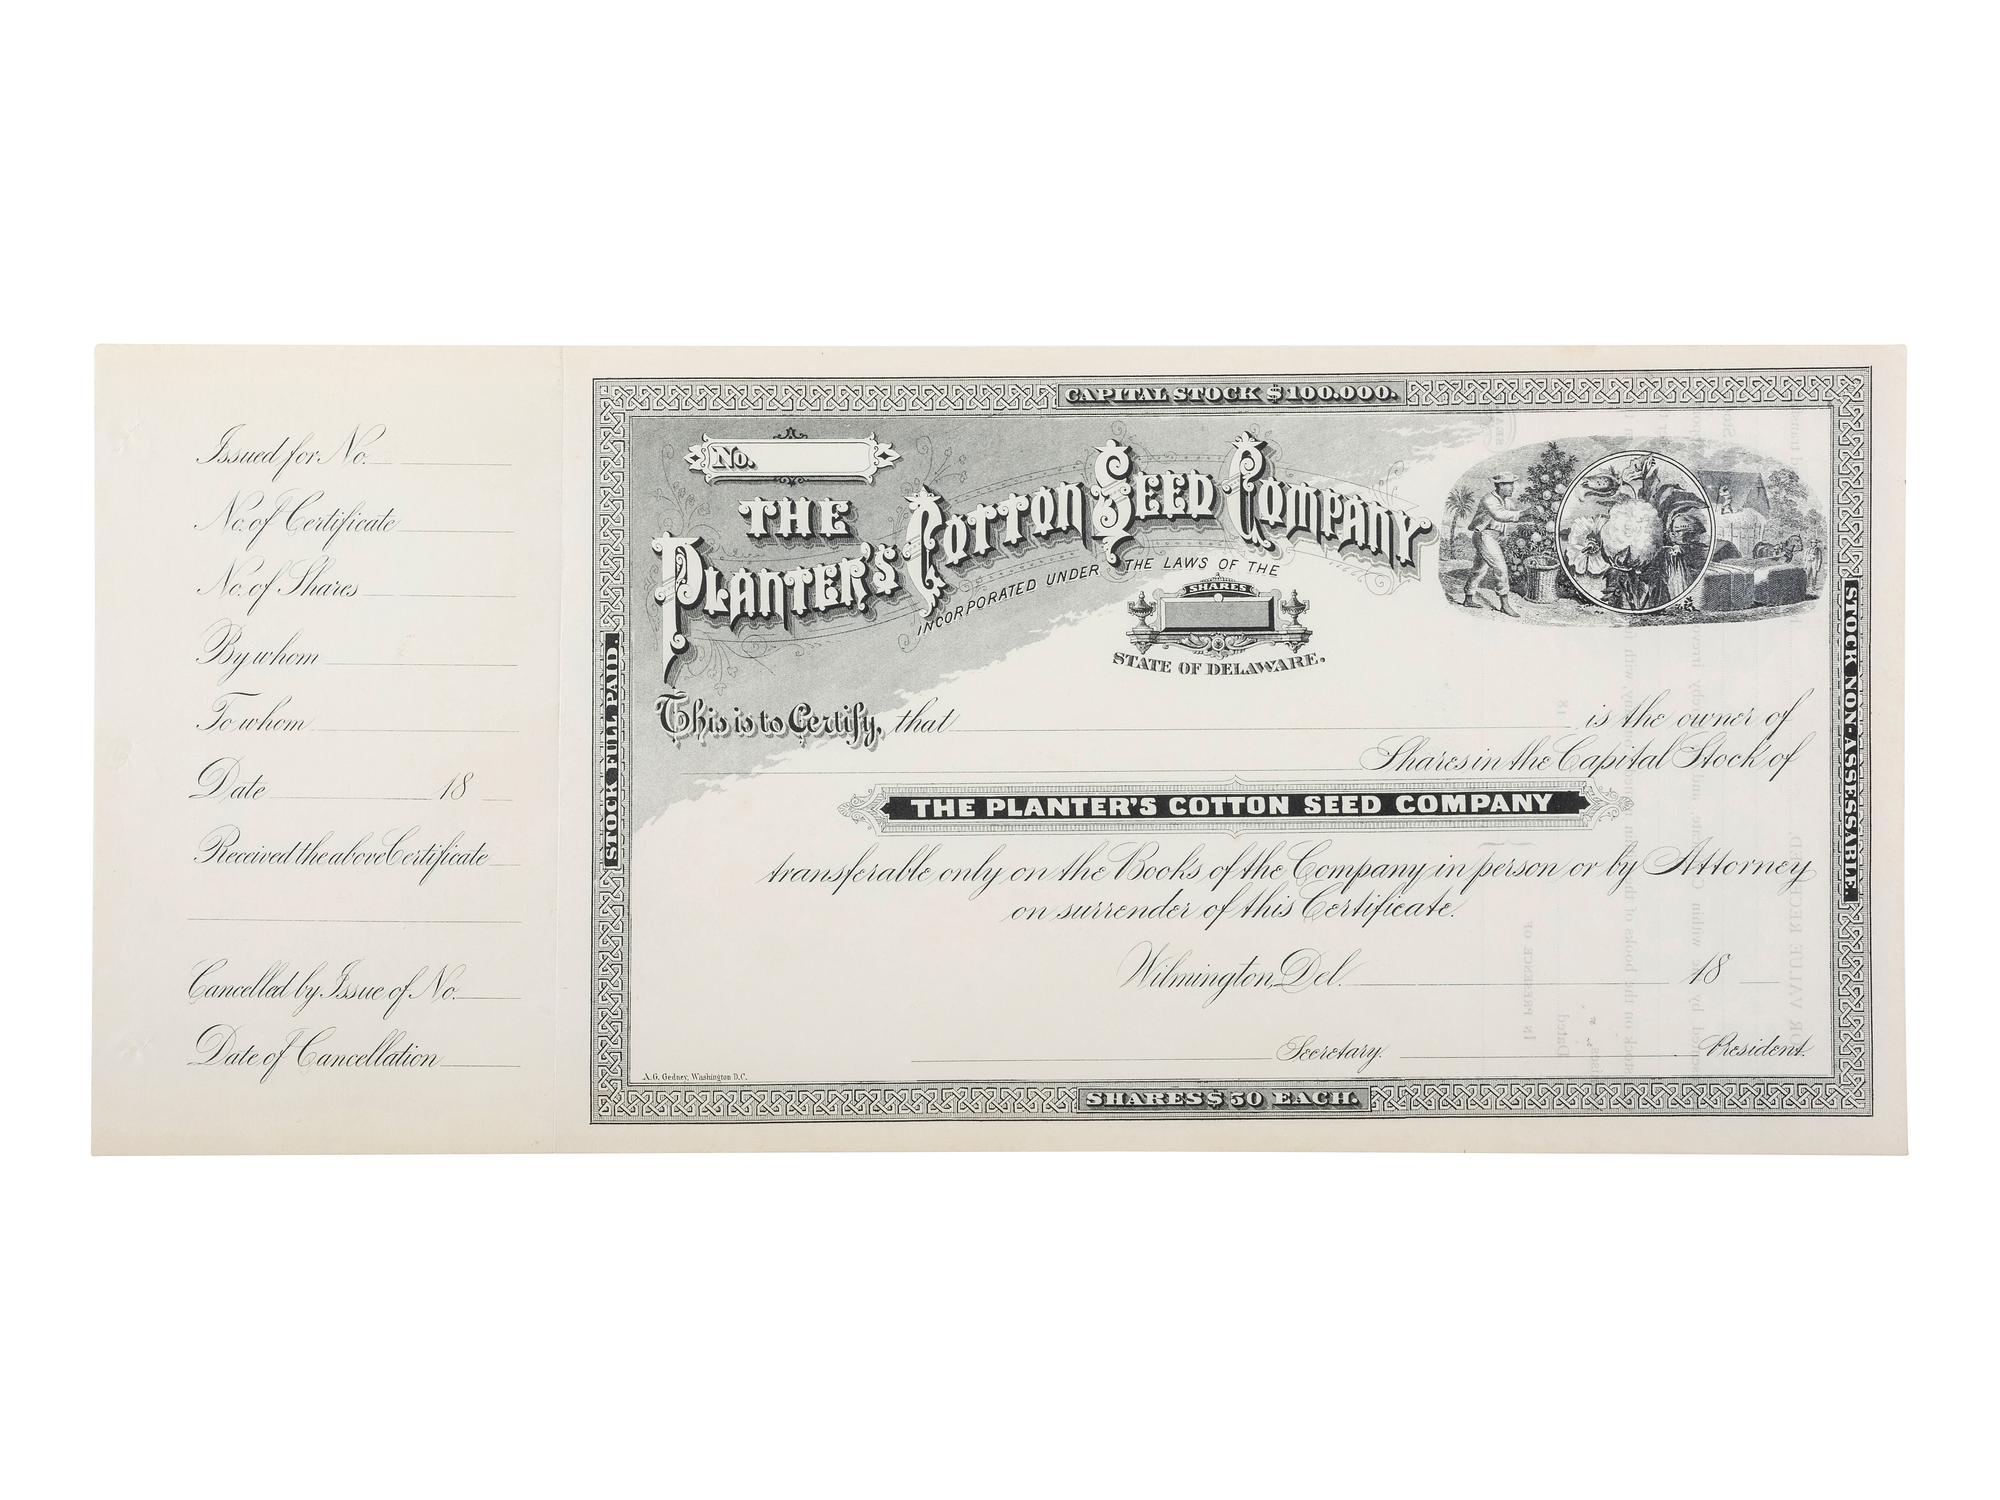 Issued for No.
No. of Certificate
No. of Shares
By whom
To whom
Date 18
Received the above Certificate
Cancelled by Issue of No.
Date of Cancellation
CAPITAL STOCK $100.000.
No.
THE
PLANTER'S COTTON SEED COMPANY
INCORPORATED UNDER THE LAWS OF THE
SHARES
STATE OF DELAWARE.
STOCK FULL PAID.
STOCK NON-ASSESSABLE.
This is to Certify, that is the owner of
Shares in the Capital Stock of
THE PLANTER'S COTTON SEED COMPANY
transferable only on the Books of the Company in person or by Attorney
on surrender of this Certificate.
Wilmington, Del. 18
Secretary. President.
A.G. Gedney, Washington D.C.
SHARES $50 EACH.